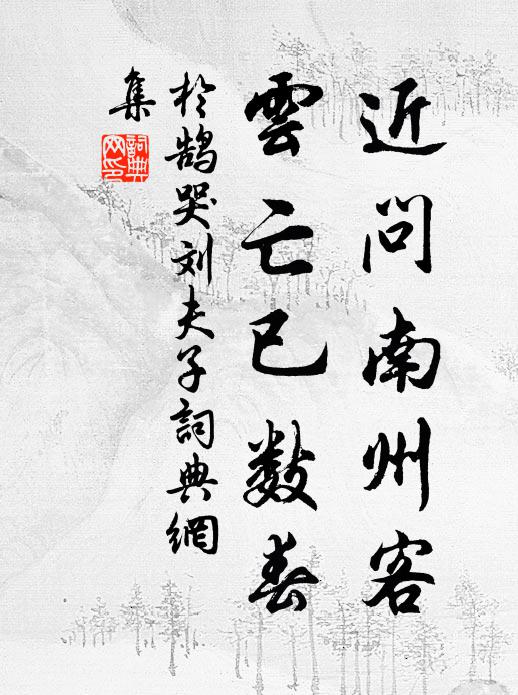 近问南州客
雲亡已数春
於鹄哭刘夫子詞典網
集
詞典
网印